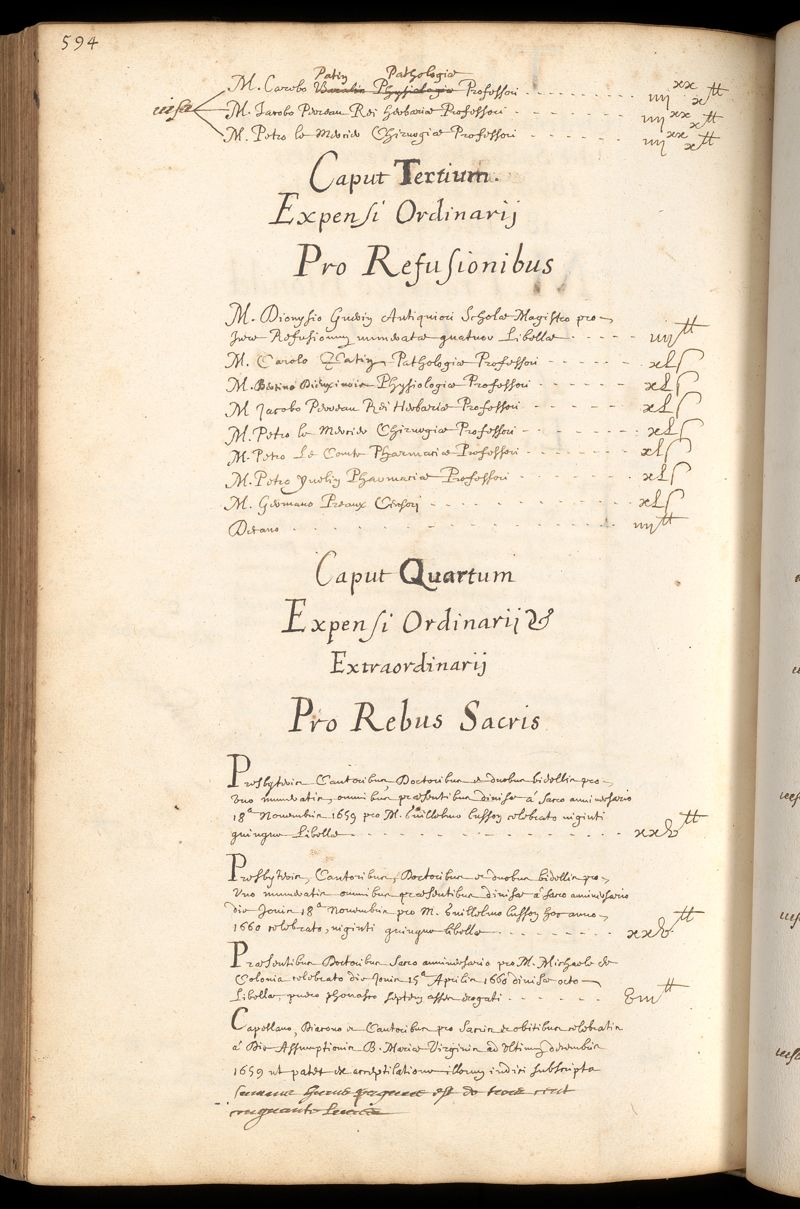 594
Patin Pathologiæ
M. Carolo Professori
M. Jacobo Perreau Rei Herbariæ Professori
M. Petro le Mercier Chirurgiæ Professori
iiii xx x tt
iiii xx x tt
iiii xx x tt
Caput Tertium.
Expensi Ordinarij
Pro Refusionibus
M. Dionysio Guerin Antiquiori Scholæ Magistro pro
Jure Refusionum numeratæ quatuor Libellæ iiii tt
M. Carolo Patin Pathologiæ Professori xLs
M. Bertino Dieuxivoie Physiologiæ Professori xLs
M Jacobo Perreau Rei Herbariæ Professori xLs
M. Petro le Mercier Chirurgiæ Professori xLs
M. Petro Le Comte Pharmaciæ Professori xLs
M. Petro Yvelin Pharmaciæ Professori xLs
M. Germano Preaux Censori xLs
Decano iiii tt
Caput Quartum
Expensi Ordinarij &
Extraordinarij
Pro Rebus Sacris
Presbyteris Cantoribus, Doctoribus et duobus bidellis pro
uno numeratis, omnibus præsentibus divisæ à sacro anniversario
18ª Novembris 1659 pro M. Guillelmo Lusson celebrato viginti
quinque Libellæ xxv tt
Presbyteris, Cantoribus, Doctoribus et duobus bidellis pro
uno numeratis omnibus præsentibus divisæ à sacro anniversario
die Jovis 18ª Novembris pro M. Guillelmo Lusson hoc anno
1660 celebrato, viginti quinque libellæ xxv tt
Præsentibus Doctoribus sacro anniversario pro M. Michaele de
Colonia celebrato die Jovis 15ª Aprilis 1660 divisæ octo
Libellæ, puero phonasco septem asses erogati viii tt
Capellano, Diacono et Cantoribus pro Sacris et obitibus celebratis
à Die Assumptionis B. Mariæ Virginis ad Ultimum decembris
1659 ut patet ex acceptilatione illorum indici subscripta